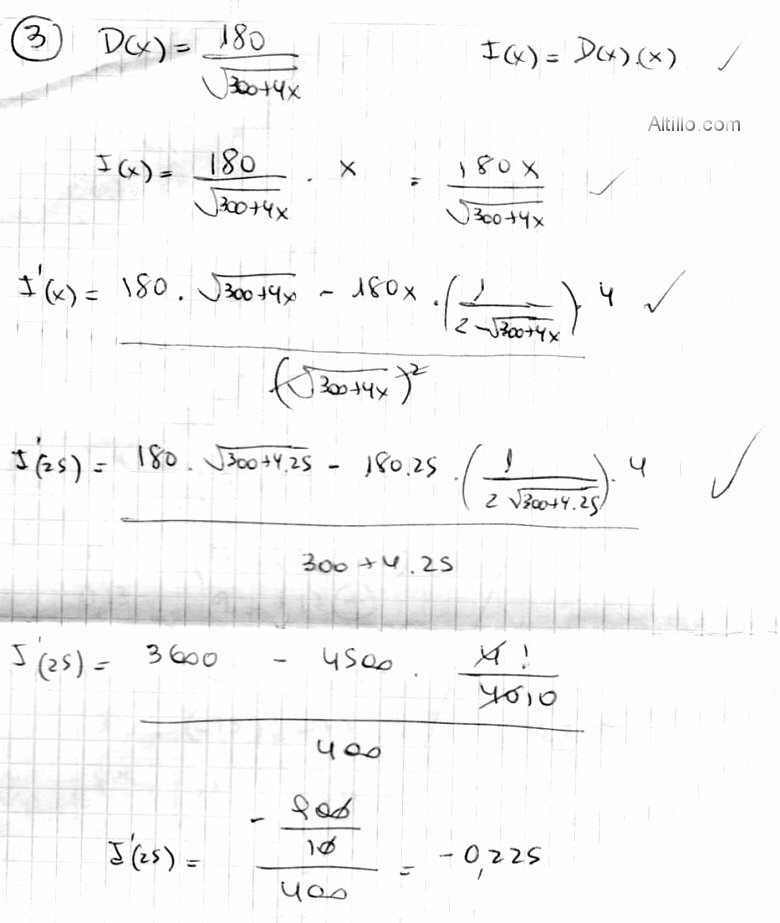 ③ D(x) = 180 / √(300+4x)    I(x) = D(x).(x) ✓
Altillo.com
I(x) = 180 / √(300+4x) . x = 180x / √(300+4x) ✓
I'(x) = (180 . √(300+4x) - 180x . (1 / (2√(300+4x))) . 4) / (√(300+4x))² ✓
I'(25) = (180 . √(300+4.25) - 180.25 . (1 / (2√(300+4.25))) . 4) / (300+4.25) ✓
I'(25) = (3600 - 4500 . 4 1 / 40 10) / 400
I'(25) = (- 900 / 10) / 400 = -0,225